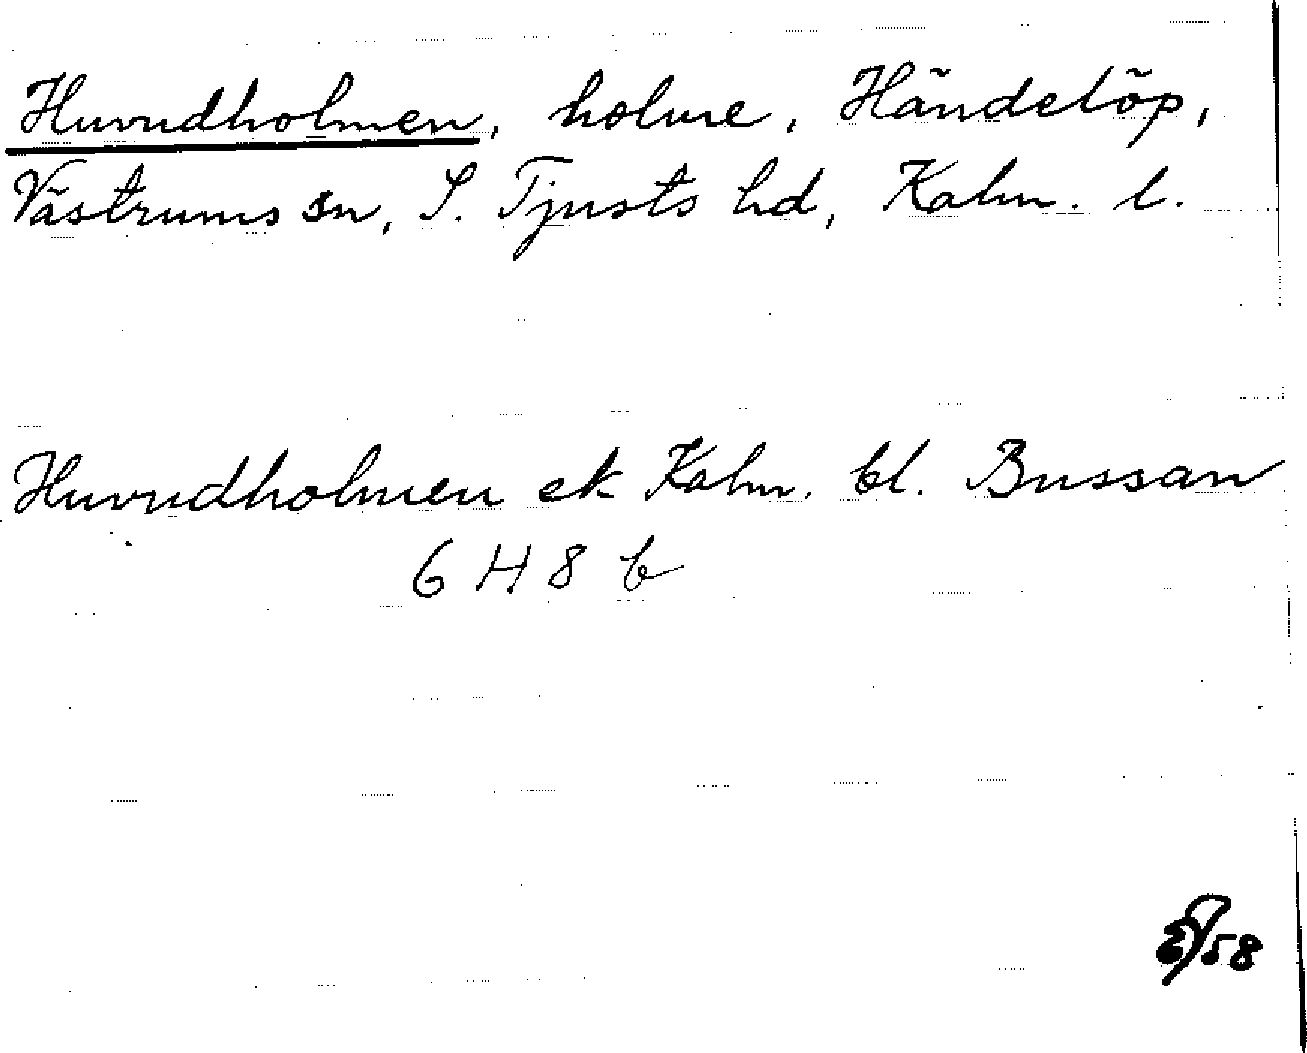 Huvudholmen, holme, Händelöp,
Västrums sn, S. Tjusts hd, Kalm. l.
Huvudholmen ek Kalm. bl. Bussan
6 H 8 b
58